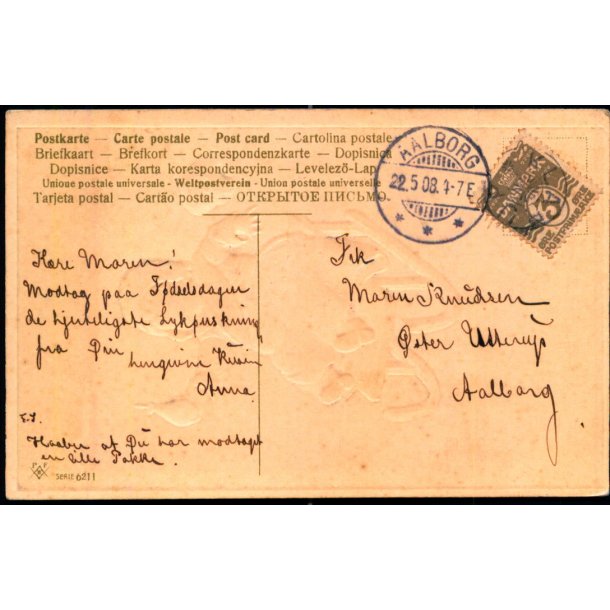 Postkarte — Carte postale — Post card — Cartolina postale
Briefkaart — Brefkort — Correspondenzkarte — Dopisnica
Dopisnice — Karta korespondencyjna — Levelező-Lap
Unione postale universale - Weltpostverein - Union postale universelle
Tarjeta postal — Cartão postal — ОТКРЫТОЕ ПИСЬМО.
AALBORG
22.5.08. 4-7 E
DANMARK
3
ØRE
POSTFRIM
Kære Maren!
Modtag paa Fødselsdagen
de hjerteligste Lykønskning
fra Din hengivne Kusin
Anna
E.S.
Haaber at Du har modtaget
en lille Pakke.
Frk
Maren Knudsen
Øster Utterup
Aalborg
SERIE 6211